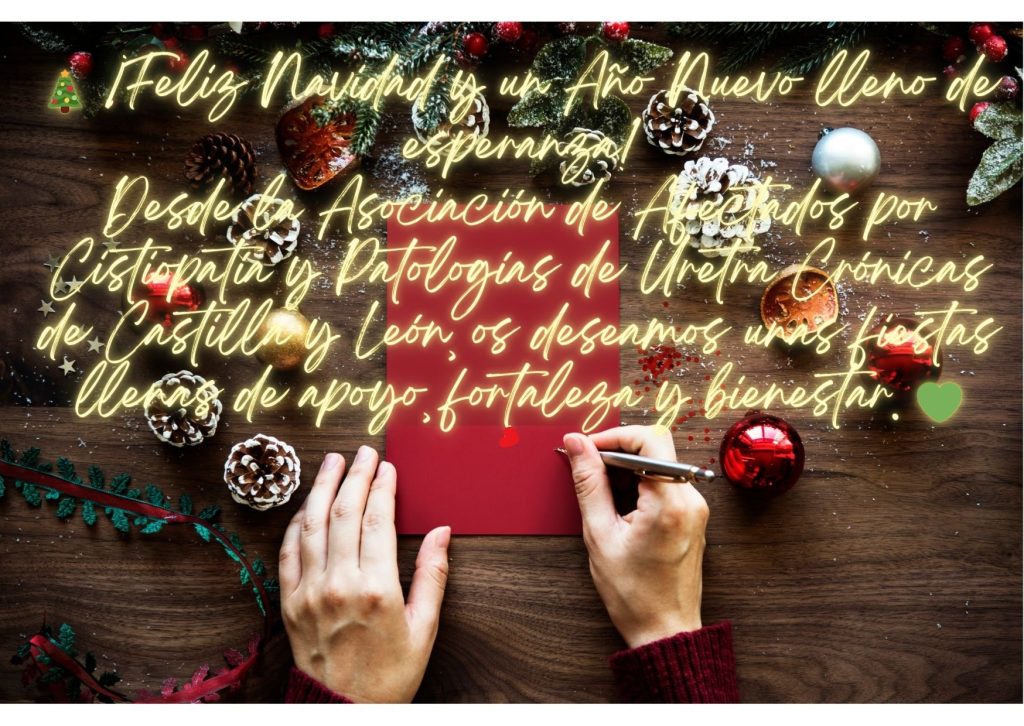 🎄¡Feliz Navidad y un Año Nuevo lleno de
esperanza!
Desde la Asociación de Afectados por
Cistiopatía y Patologías de Uretra Crónicas
de Castilla y León, os deseamos unas fiestas
llenas de apoyo, fortaleza y bienestar. 💚